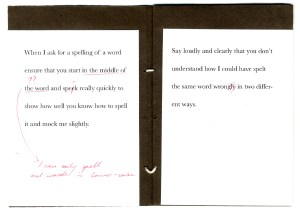 When I ask for a spelling of a word
ensure that you start in the middle of
??
the word and speak really quickly to
show how well you know how to spell
it and mock me slightly.
I can only spell
out words in lower-case
Say loudly and clearly that you don't
understand how I could have spelt
the same word wrongly in two differ-
ent ways.